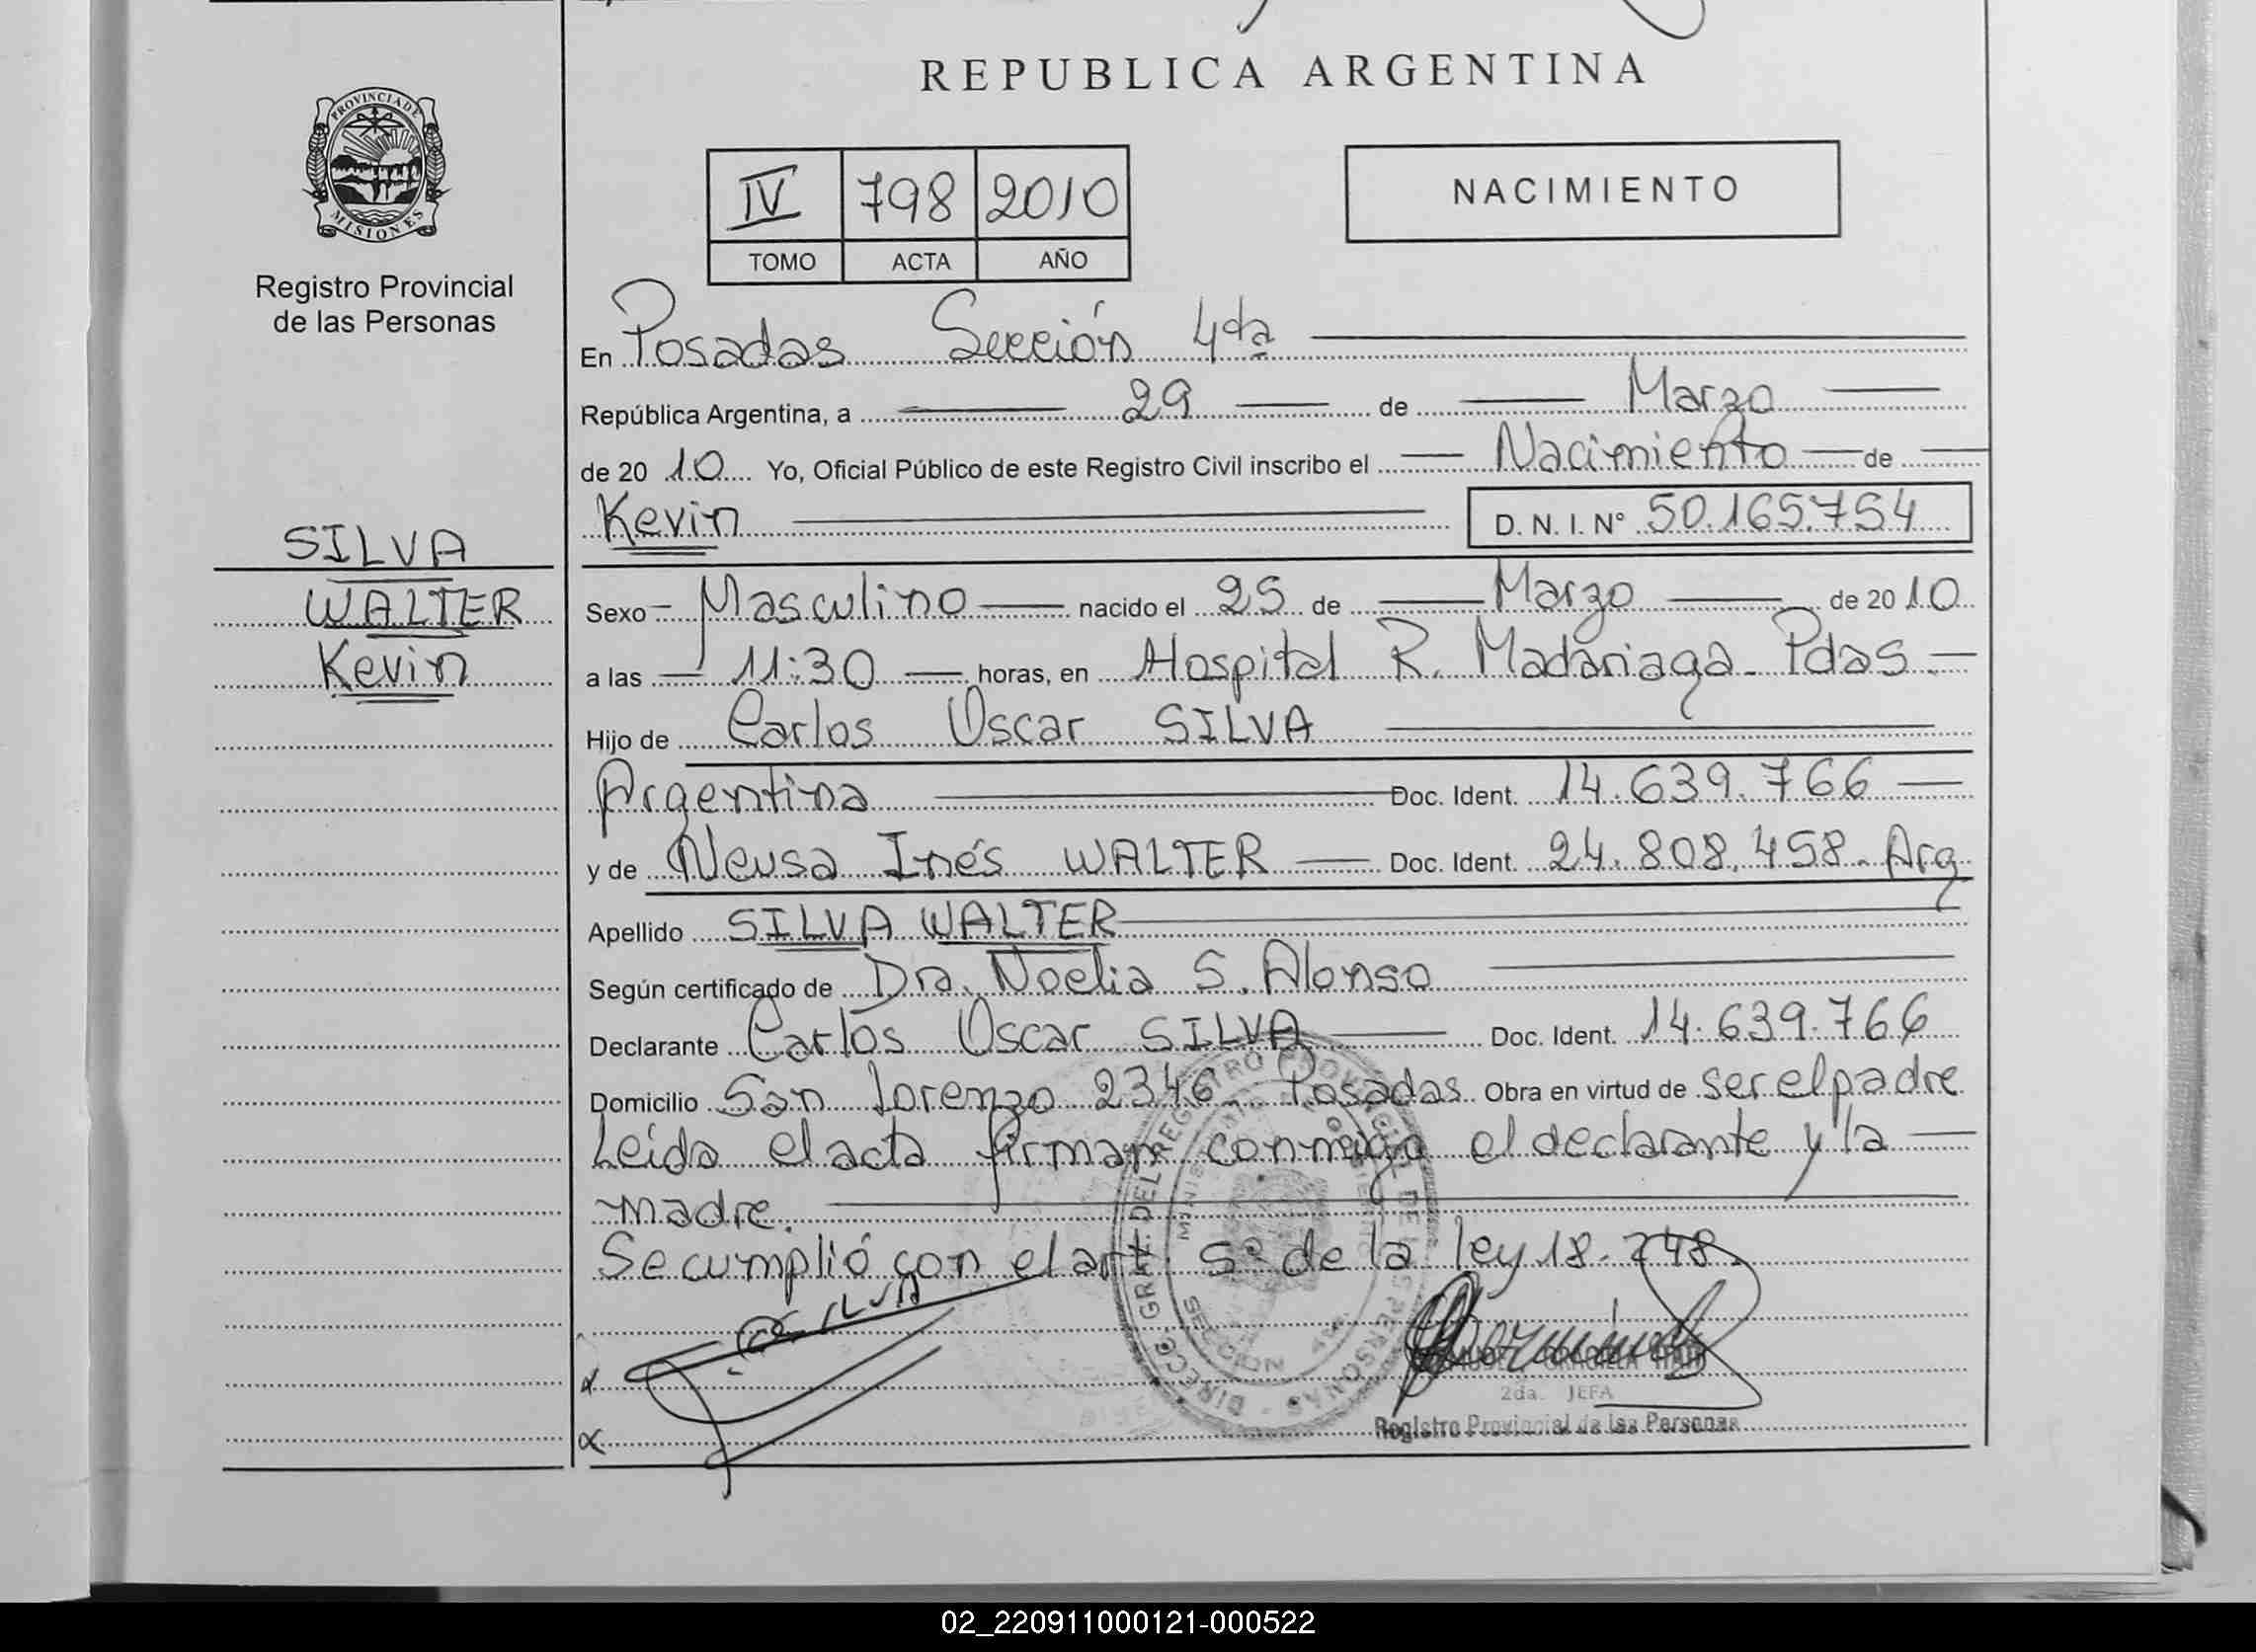 REPUBLICA ARGENTINA
PROVINCIA DE
MISIONES
Registro Provincial
de las Personas
IV 798 2010
TOMO ACTA AÑO
NACIMIENTO
En Posadas Sección 4ta
República Argentina, a 29 de Marzo
de 20 10 Yo, Oficial Público de este Registro Civil inscribo el Nacimiento de
Kevin D. N. I. N° 50.165.754
SILVA
WALTER
Kevin
Sexo Masculino nacido el 25 de Marzo de 20 10
a las 11:30 horas, en Hospital R. Madariaga - Pdas
Hijo de Carlos Oscar SILVA
Argentina Doc. Ident. 14.639.766
y de Neusa Inés WALTER Doc. Ident. 24.808.458 - Arg
Apellido SILVA WALTER
Según certificado de Dra. Noelia S. Alonso
Declarante Carlos Oscar SILVA Doc. Ident. 14.639.766
Domicilio San Lorenzo 2346 - Posadas Obra en virtud de ser el padre
Leída el acta firman conmigo el declarante y la
madre.
Se cumplió con el art. 5° de la ley 18.248.
SILVA
GRACIELA
2da. JEFA
Registro Provincial de las Personas
02_220911000121-000522